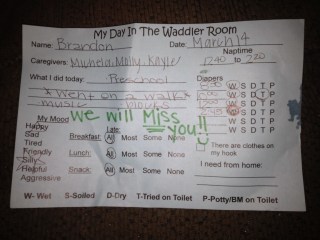 My Day In The Waddler Room
Name: Brandon Date: March 14
Caregivers: Michela, Molly, Kaylee
Naptime
1240 to 220
What I did today: Preschool
Diapers
* Went on a walk *
W S D T P
music blocks
W S D T P
W S D T P
we will Miss you!!
W S D T P
My Mood
W S D T P
Happy
I Ate:
W S D T P
Sad
Breakfast: All Most Some None
There are clothes on my hook
Tired
Friendly
Lunch: All Most Some None
I need from home:
Silly
Helpful
Snack: All Most Some None
Aggressive
W- Wet S-Soiled D-Dry T-Tried on Toilet P-Potty/BM on Toilet